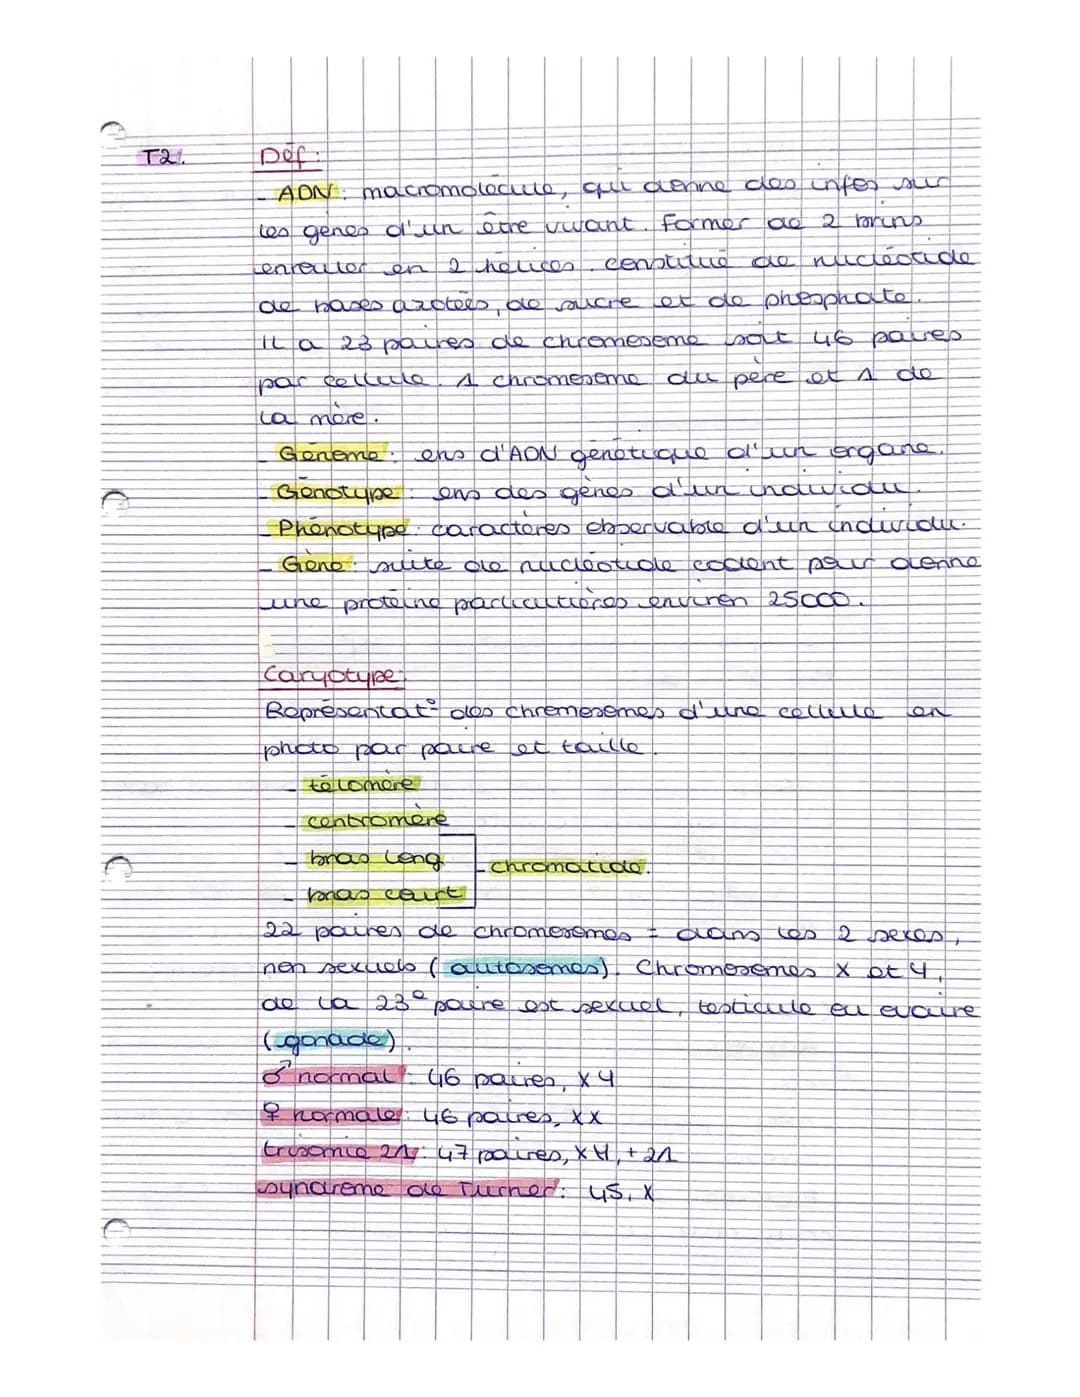 T2.
Déf :
- ADN : macromolécule, qui donne des infos sur
les gènes d'un être vivant. Former de 2 brins
enrouler en 2 hélices. constitué de nucléotide
de bases azotées, de sucre et de phosphate.
Il a 23 paires de chromosome soit 46 paires
par cellule. 1 chromosome du père et 1 de
la mère.
- Génome : ens d'ADN génétique d'un organe.
- Génotype : ens des gènes d'un individu.
- Phénotype : caractères observable d'un individu.
- Gène : suite de nucléotide codent pour donne
une protéine particulières environ 25000.
Caryotype :
Représentat° des chromosomes d'une cellule en
photo par paire et taille.
- télomère
- centromère
- bras long
- chromatide.
- bras court
22 paires de chromosomes = dans les 2 sexes,
non sexuels (autosomes). Chromosomes X et Y,
de la 23e paire est sexuel, testicule ou ovaire
(gonade).
♂ normal : 46 paires, XY
♀ normale : 46 paires, XX
trisomie 21 : 47 paires, XY, + 21
syndrome de Turner : 45, X